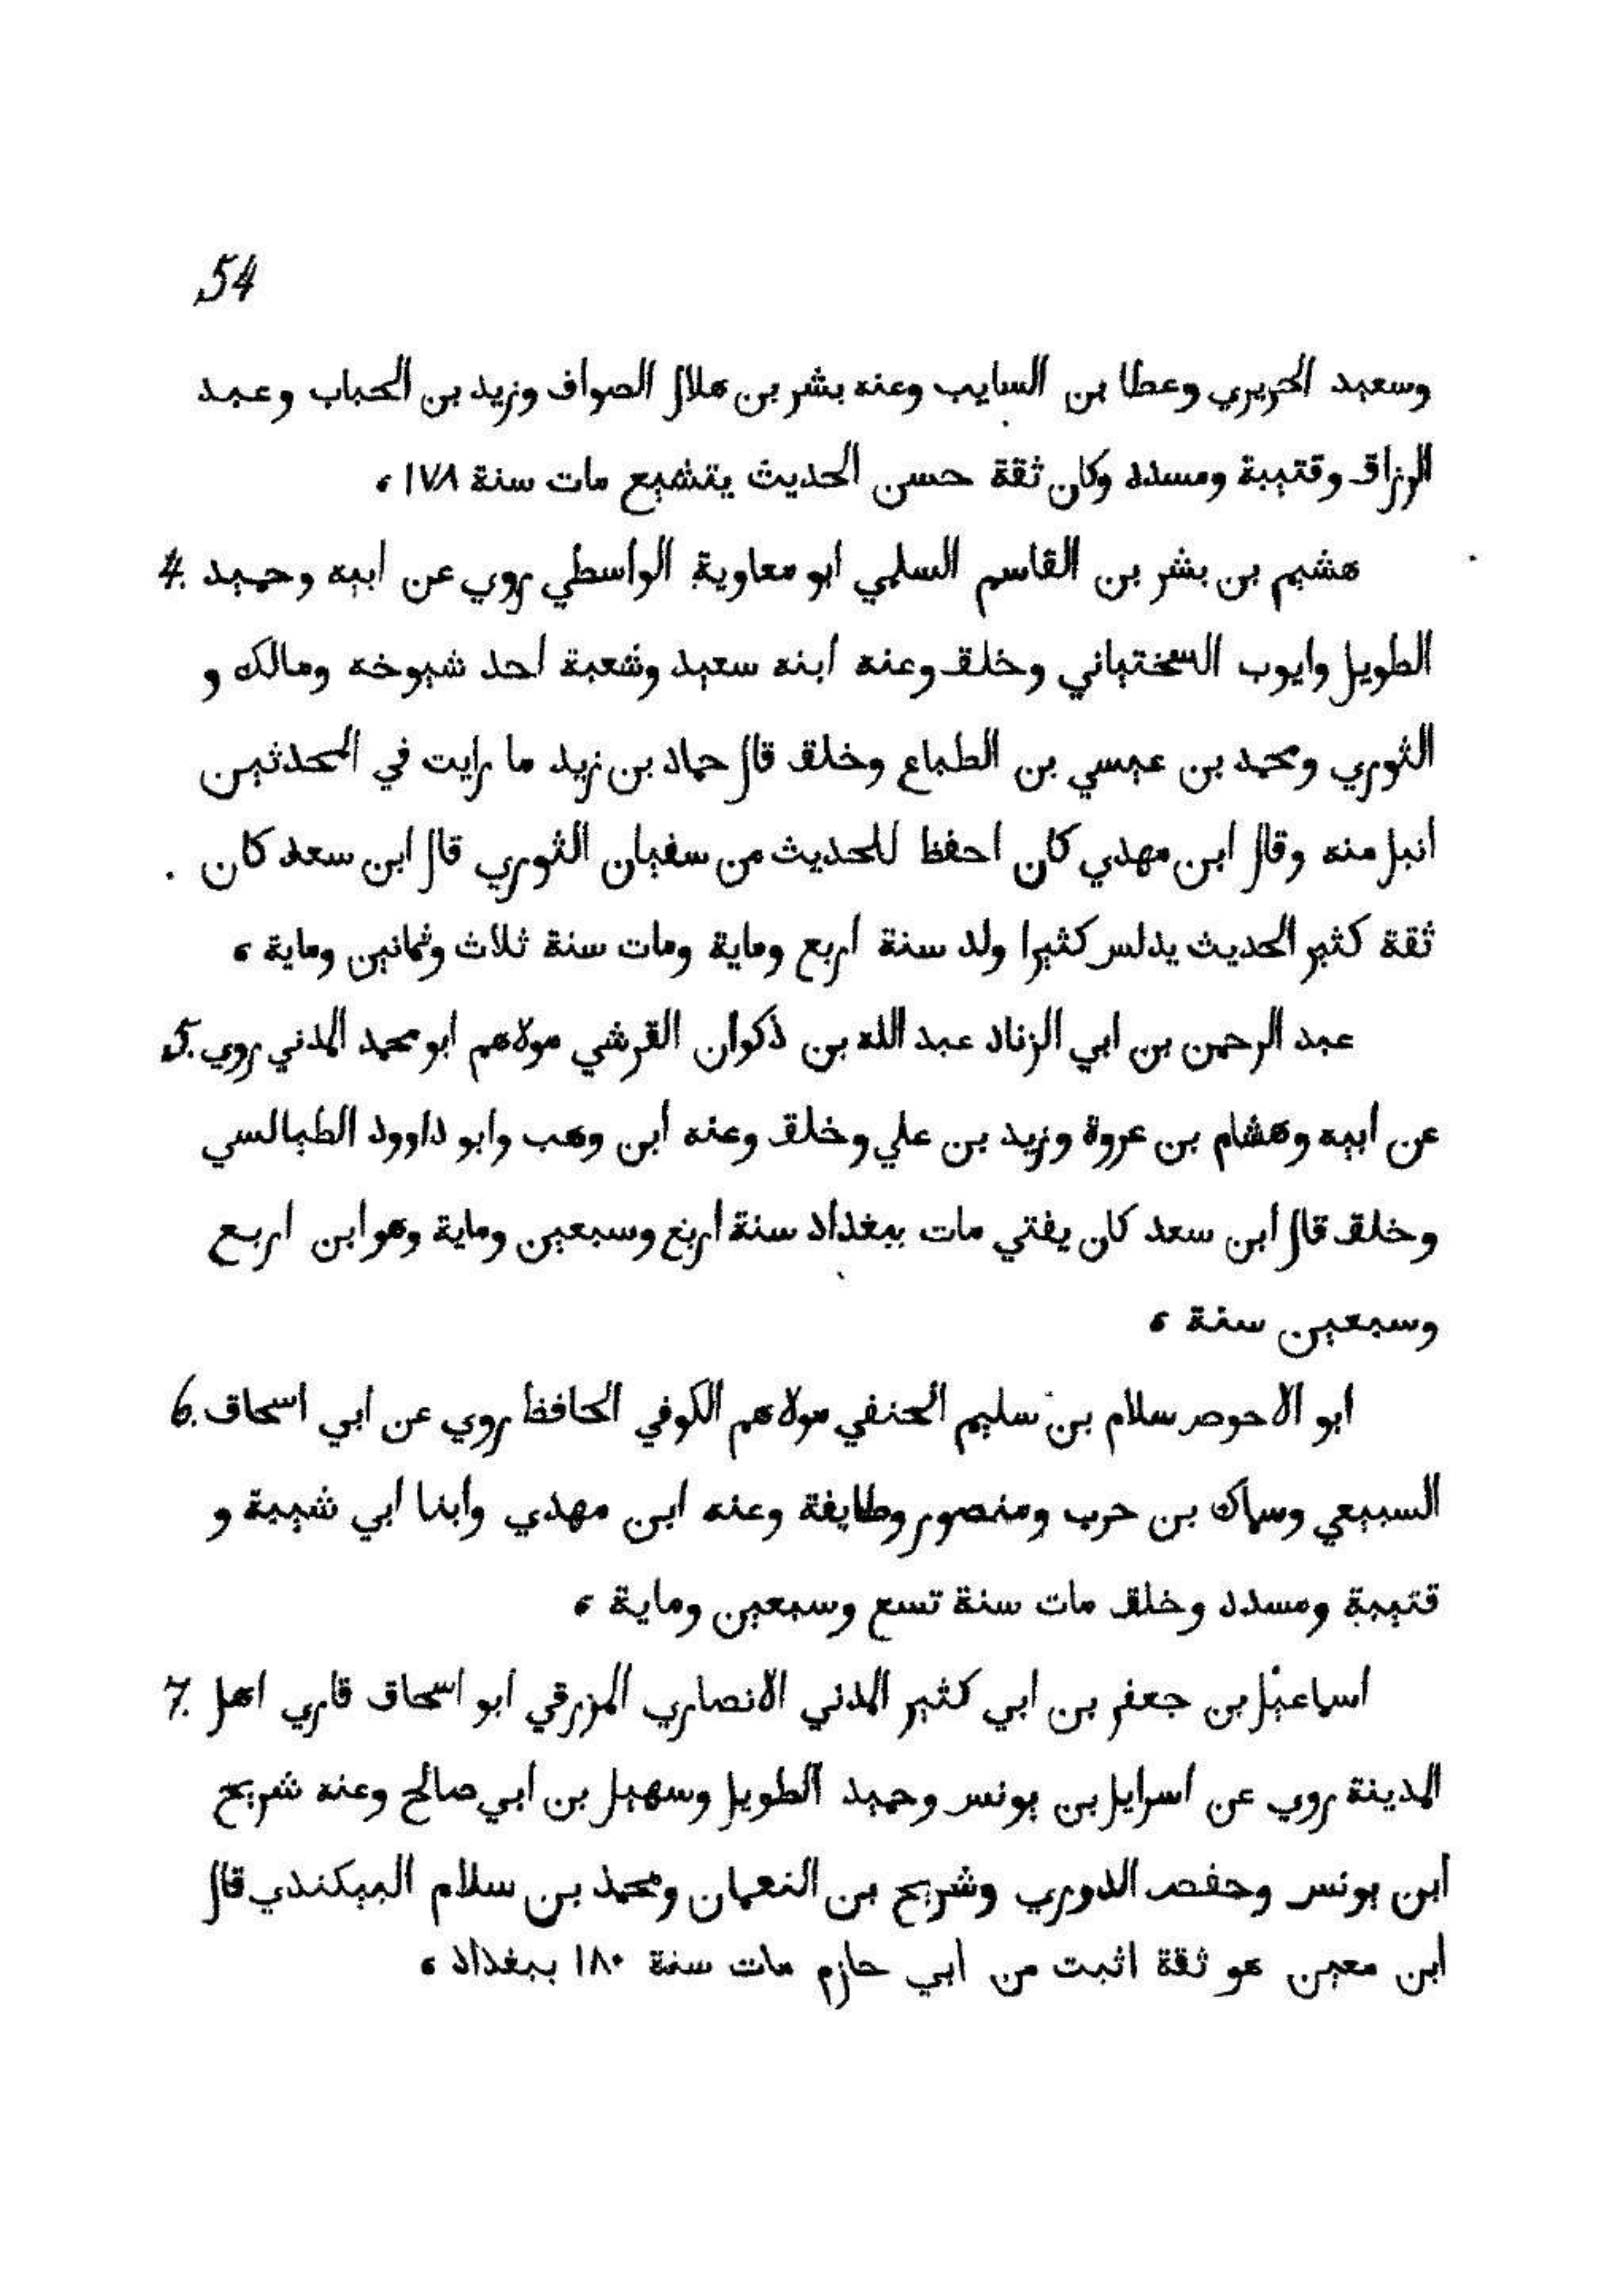 54
وسعيد الحريري وعطا بن السايب وعنه بشر بن هلال الصواف وزيد بن الحباب وعبد
الرزاق وقتيبة ومسدد وكان ثقة حسن الحديث يتشيع مات سنة ١٧٨ ،
هشيم بن بشر بن القاسم السلمي ابو معاوية الواسطي روي عن ابيه وحميد 4.
الطويل وايوب السختياني وخلق وعنه ابنه سعيد وشعبة احد شيوخه ومالك و
الثوري ومحمد بن عيسي بن الطباع وخلق قال حماد بن زيد ما رايت في المحدثين
انبل منه وقال ابن مهدي كان احفظ للحديث من سفيان الثوري قال ابن سعد كان
ثقة كثير الحديث يدلس كثيرا ولد سنة اربع وماية ومات سنة ثلاث وثمانين وماية ،
عبد الرحمن بن ابي الزناد عبد الله بن ذكوان القرشي مولاهم ابو محمد المدني روي 5.
عن ابيه وهشام بن عروة وزيد بن علي وخلق وعنه ابن وهب وابو داوود الطيالسي
وخلق قال ابن سعد كان يفتي مات ببغداد سنة اربع وسبعين وماية وهو ابن اربع
وسبعين سنة ،
ابو الاحوص سلام بن سليم الحنفي مولاهم الكوفي الحافظ روي عن ابي اسحاق 6.
السبيعي وسماك بن حرب ومنصور وطايفة وعنه ابن مهدي وابنا ابي شيبة و
قتيبة ومسدد وخلق مات سنة تسع وسبعين وماية ،
اسماعيل بن جعفر بن ابي كثير المدني الانصاري المزرقي ابو اسحاق قاري اهل 7.
المدينة روي عن اسرايل بن يونس وحميد الطويل وسهيل بن ابي صالح وعنه شريح
ابن يونس وحفص الدوري وشريح بن النعمان ومحمد بن سلام البيكندي قال
ابن معين هو ثقة اثبت من ابي حازم مات سنة ١٨٠ ببغداد ،